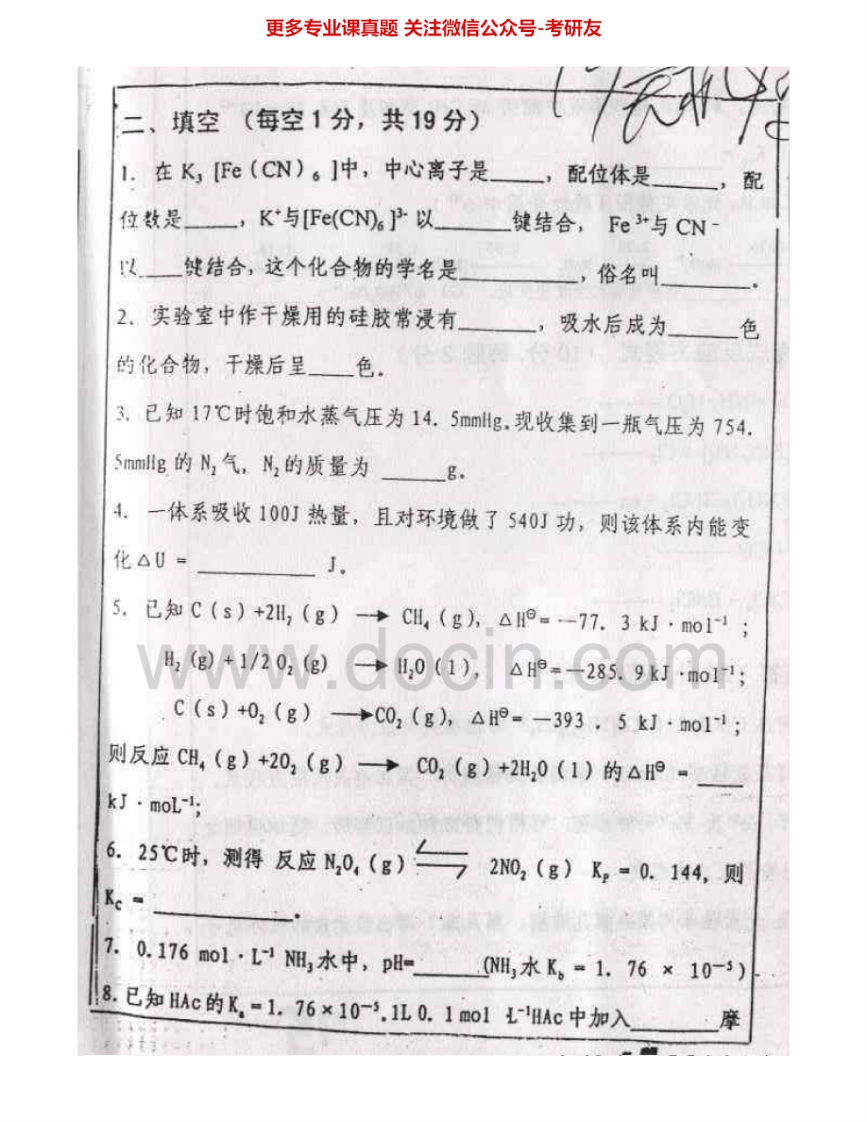 更多专业课真题 关注微信公众号-考研友
二、填空 （每空1分，共19分）
1. 在 K₃ [Fe（CN）₆ ]中，中心离子是____，配位体是_____，配
位数是____，K⁺与[Fe(CN)₆ ]³⁻ 以______键结合， Fe ³⁺与 CN ⁻
以___键结合，这个化合物的学名是_________，俗名叫_______。
2. 实验室中作干燥用的硅胶常浸有______，吸水后成为_____色
的化合物，干燥后呈___色。
3. 已知 17℃时饱和水蒸气压为 14. 5mmHg.现收集到一瓶气压为 754.
5mmHg 的 N₂ 气，N₂ 的质量为 _____g。
4. 一体系吸收 100J 热量，且对环境做了 540J 功，则该体系内能变
化 △U = _________ J。
5. 已知 C（s）+2H₂（g） → CH₄（g），△H⊖= —77. 3 kJ · mol⁻¹；
H₂ (g) + 1/2 O₂ (g) → H₂O（l）， △H⊖=—285. 9 kJ ·mol⁻¹；
C（s）+O₂（g） →CO₂（g），△H⊖= —393 . 5 kJ · mol⁻¹；
则反应 CH₄（g）+2O₂（g） → CO₂（g）+2H₂O（l）的△H⊖ = ____
kJ · moL⁻¹;
6. 25℃时，测得 反应 N₂O₄（g） ⇌ 2NO₂（g） Kₚ = 0. 144，则
Kc = ___________.
7. 0.176 mol · L⁻¹ NH₃水中，pH=______(NH₃水 K_b = 1. 76 × 10⁻⁵).
8. 已知 HAc 的 Kₐ = 1. 76×10⁻⁵.1L 0. 1 mol L⁻¹HAc 中加入_______摩
www.docin.com